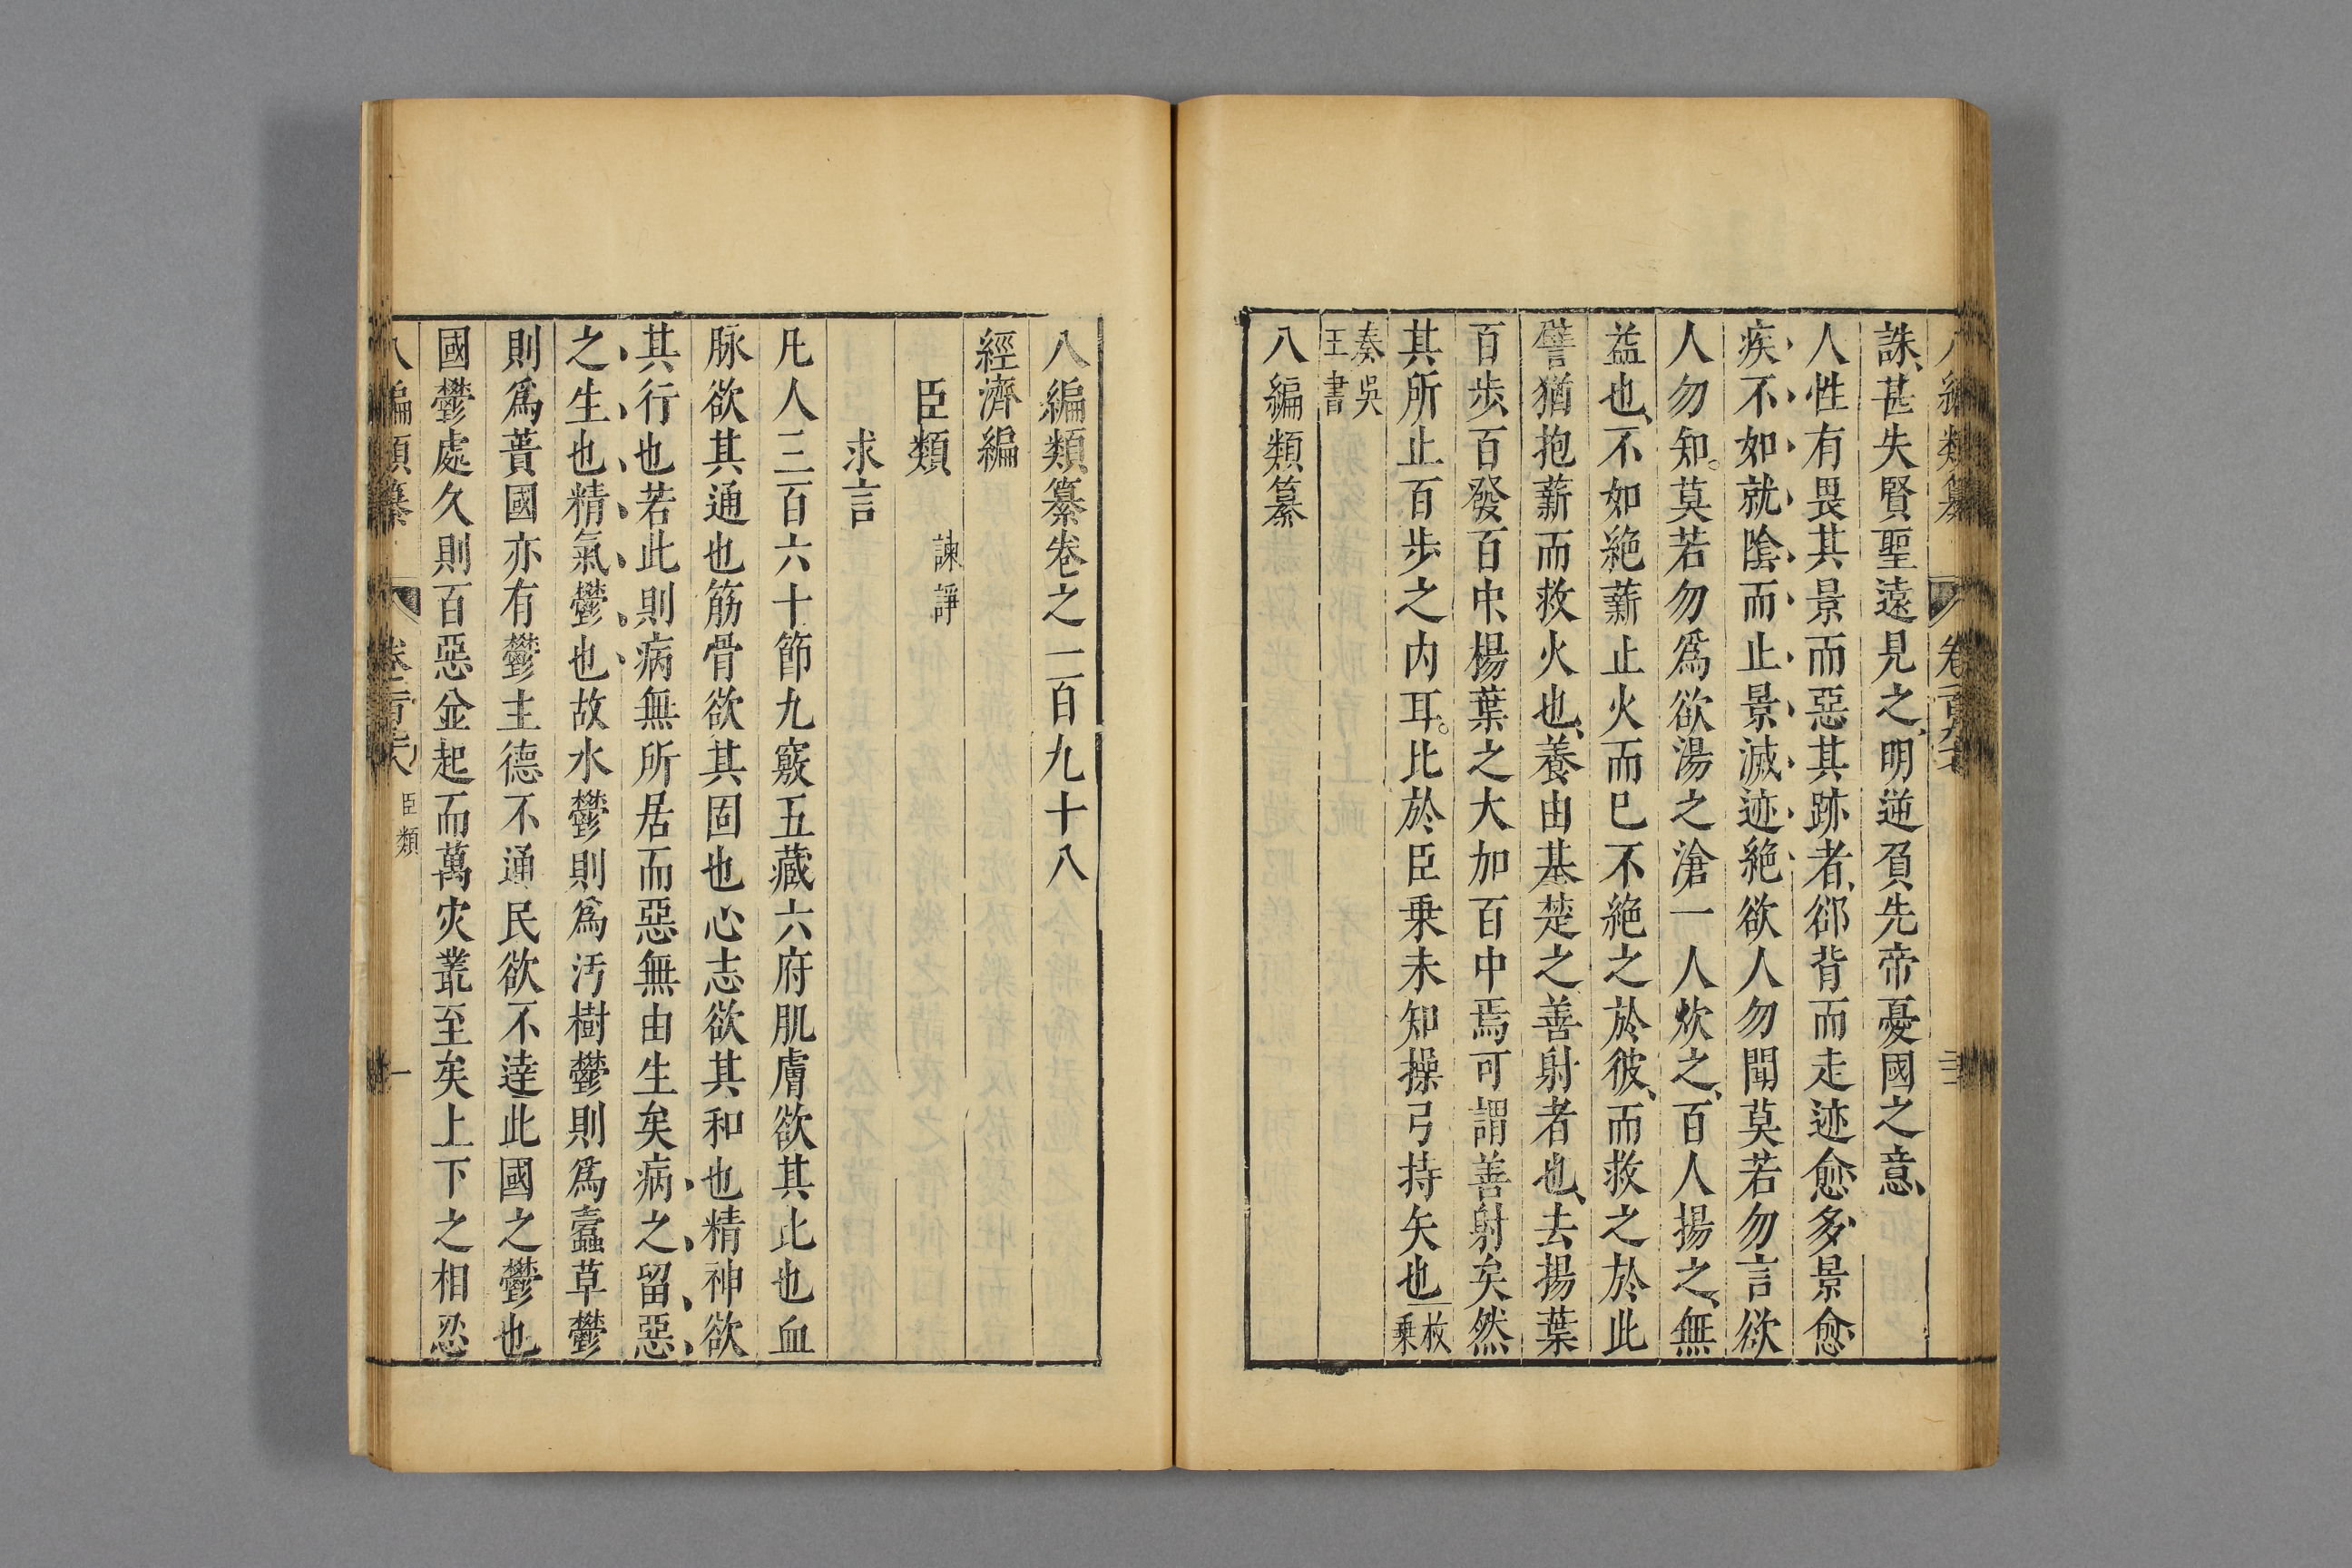 八編類纂 卷一百九十七 三
誅、甚失賢聖遠見之、明逆負先帝憂國之意、
人性有畏其景而惡其跡者、郤背而走迹愈多景愈
疾不如就陰而止景滅迹絶欲人勿聞莫若勿言欲
人勿知。莫若勿爲欲湯之滄一人炊之、百人揚之、無
益也、不如絶薪止火而已不絶之於彼、而救之於此
譬猶抱薪而救火也、養由基楚之善射者也、去揚葉
百歩、百發百中、楊葉之大加百中焉可謂善射矣然
其所止百步之内耳。比於臣乗未知操弓持矢也 枚乗
奏吳王書
八編類纂
八編類纂卷之一百九十八
經濟編
臣類 諫諍
求言
凡人三百六十節九竅五藏六府肌膚欲其比也血
脉欲其通也筋骨欲其固也心志欲其和也精神欲
其行也若此則病無所居而惡無由生矣病之留惡
之生也精氣鬱也故水鬱則爲汚樹鬱則爲蠹草鬱
則爲蕢國亦有鬱主德不通民欲不達此國之鬱也
國鬱處久則百惡並起而萬灾叢至矣上下之相忍
八編類纂 卷一百九十八 臣類 一